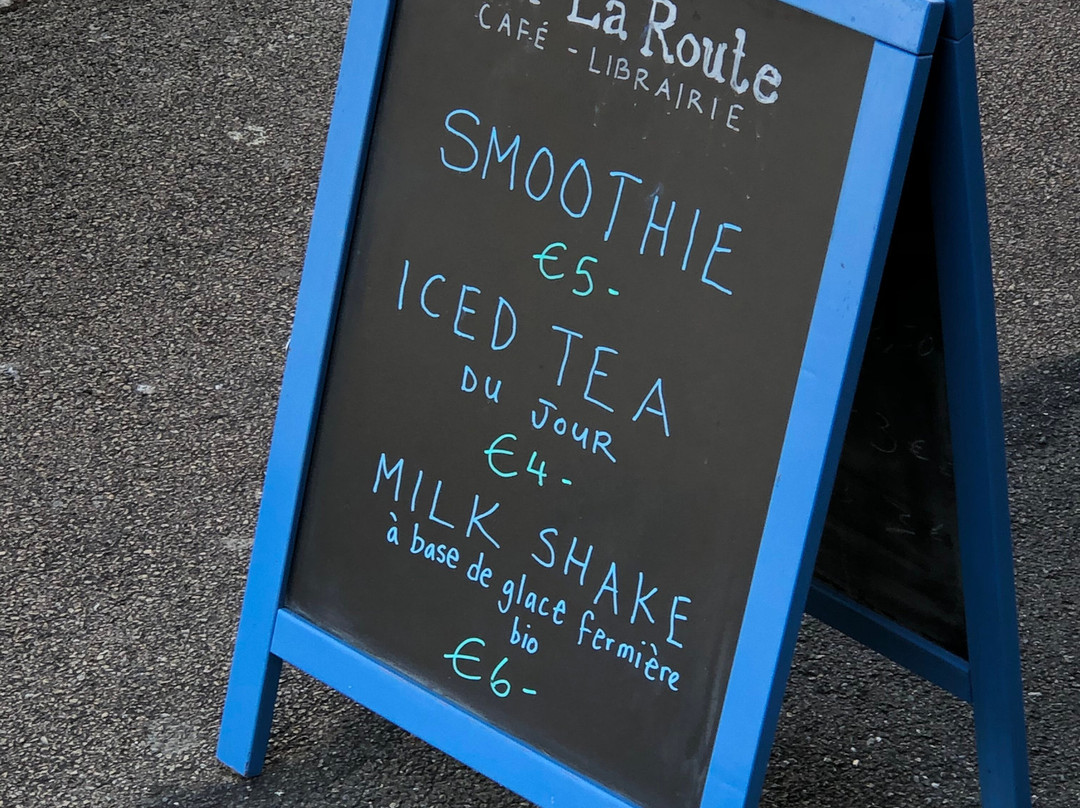 La Route
CAFÉ - LIBRAIRIE
SMOOTHIE
€5-
ICED TEA
DU JOUR
€4-
MILK SHAKE
à base de glace fermière
bio
€6-